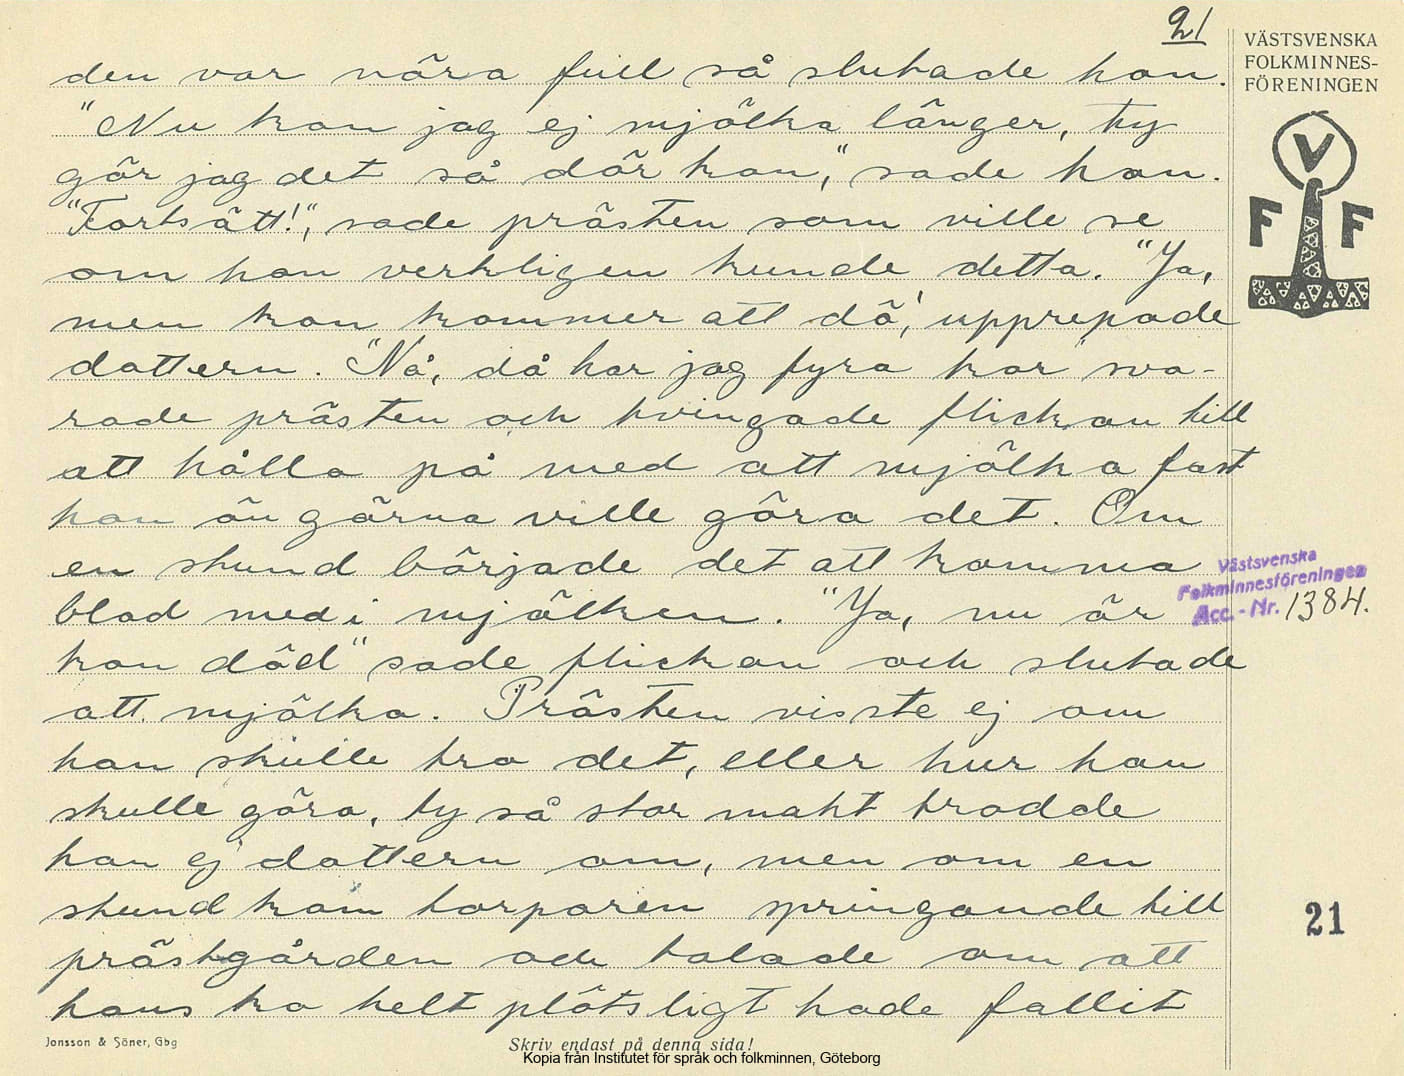 21
VÄSTSVENSKA
FOLKMINNES-
FÖRENINGEN
V
F F
den var nära full så slutade hon.
"Nu kan jag ej mjölka länger, ty
gör jag det så dör kon", sade hon.
"Fortsätt!", sade prästen som ville se
om hon verkligen kunde detta. "Ja,
men kon kommer att dö", upprepade
dottern. "Nå, då har jag fyra kor" sva-
rade prästen och tvingade flickan till
att hålla på med att mjölka fast
hon än gärna ville göra det. Om
en stund började det att komma
blod med i mjölken. "Ja, nu är
kon död" sade flickan och slutade
att mjölka. Prästen visste ej om
han skulle tro det, eller hur han
skulle göra, ty så stor makt trodde
han ej dottern om, men om en
stund kom torparen springande till
prästgården och talade om att
hans ko helt plötsligt hade fallit
Västsvenska
Folkminnesföreningen
Acc.-Nr. 1384.
21
Jonsson & Söner, Gbg
Skriv endast på denna sida!
Kopia från Institutet för språk och folkminnen, Göteborg